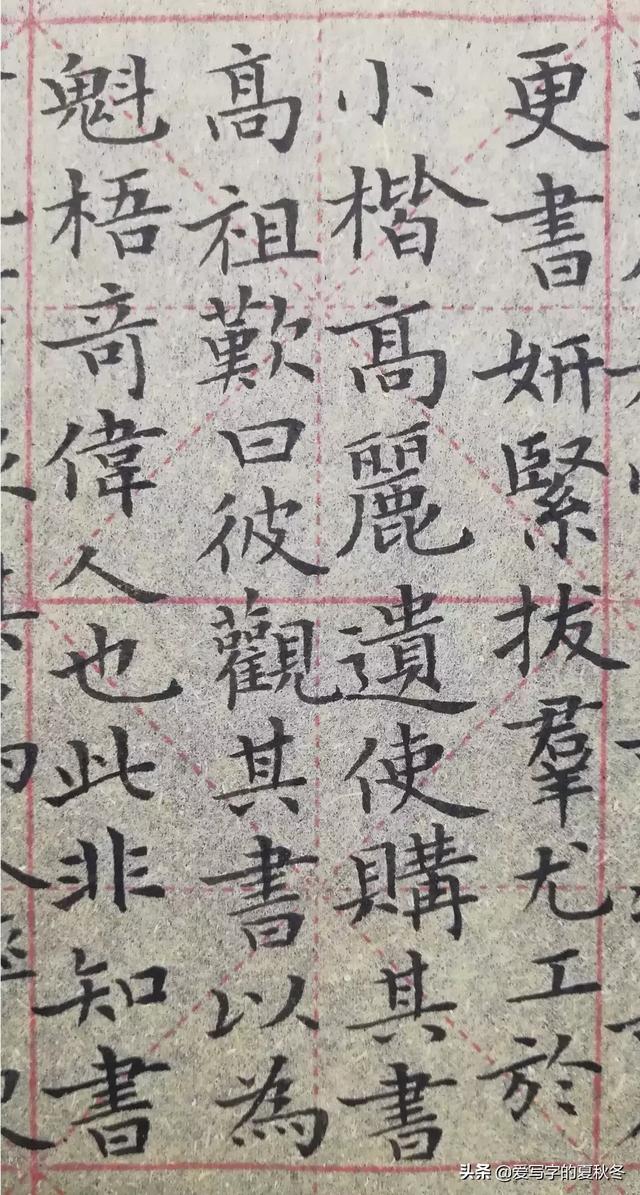 更書妍緊拔羣尤工於
小楷高麗遺使購其書
高祖歎曰彼觀其書以為
魁梧竒偉人也此非知書
头条 @爱写字的夏秋冬